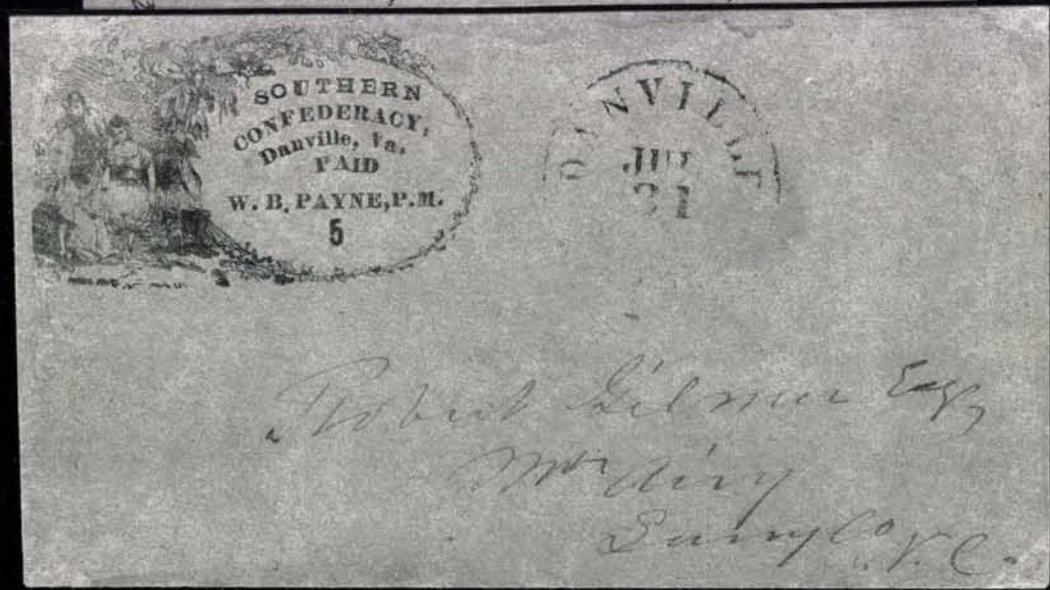 SOUTHERN
CONFEDERACY,
Danville, Va.
PAID
W. B. PAYNE, P.M.
5
DANVILLE
JUL
31
Robert Gilmer Esq,
Mt Airy
Surry Co N.C.